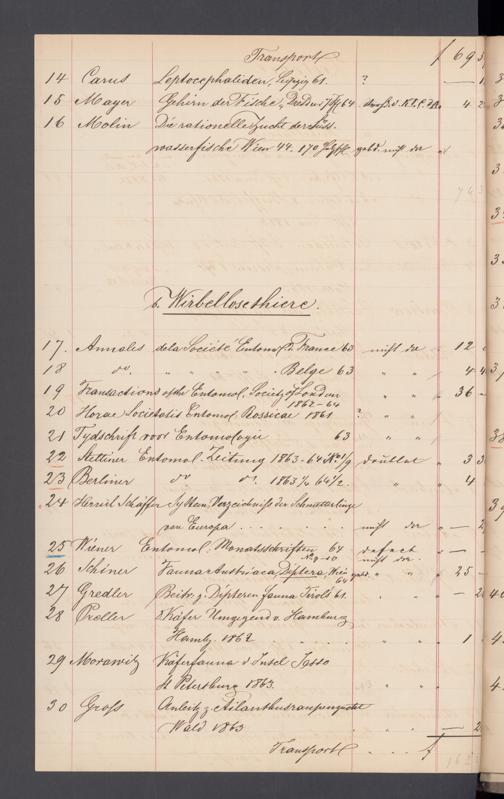 Transport f 69
14 Carus Leptocephaliden, Leipzig 61. ?
15 Mayer Gehirn der Fische, Dresden 64 4 2
16 Molin Die rationelle Zucht der süss-
wasserfische Wien 44. geb. nicht da
b. Wirbellosethiere.
17. Annales de la Société Entomol. d. France 63 nicht da 12
18 do. " " " Belge 63 " " 4 4
19 Transactions of the Entomol. Society of London " " 36 —
1862-64
20 Horae Societatis Entomol. Rossicae 1861 ? " "
21 Tydschrift voor Entomologie 63 " "
22 Stettiner Entomol. Zeitung 1863-64 doublet " 3
23 Berliner do do. 1863 64 1/2. " " 4
24 Herrich Schäffer System. Verzeichniss der Schmetterlinge
von Europa . . . . . nicht da — 2
25 Wiener Entomol. Monatsschriften 64 defect — —
No. 9-10 nicht da.
26 Schiner Fauna Austriaca, Diptera, Wien " " 25 —
64 geb.
27 Gredler Beitr. z. Dipteren fauna Tirols 61. " " — 2
28 Preller Käfer Umgegend v. Hamburg
Hambg. 1862 " " 1
29 Morawitz Käferfauna d Insel Jesso
St Petersburg 1863. " "
30 Gross Anleitg z. Ailanthusraupenzucht
Wald 1863 — 2
Transport . . . f